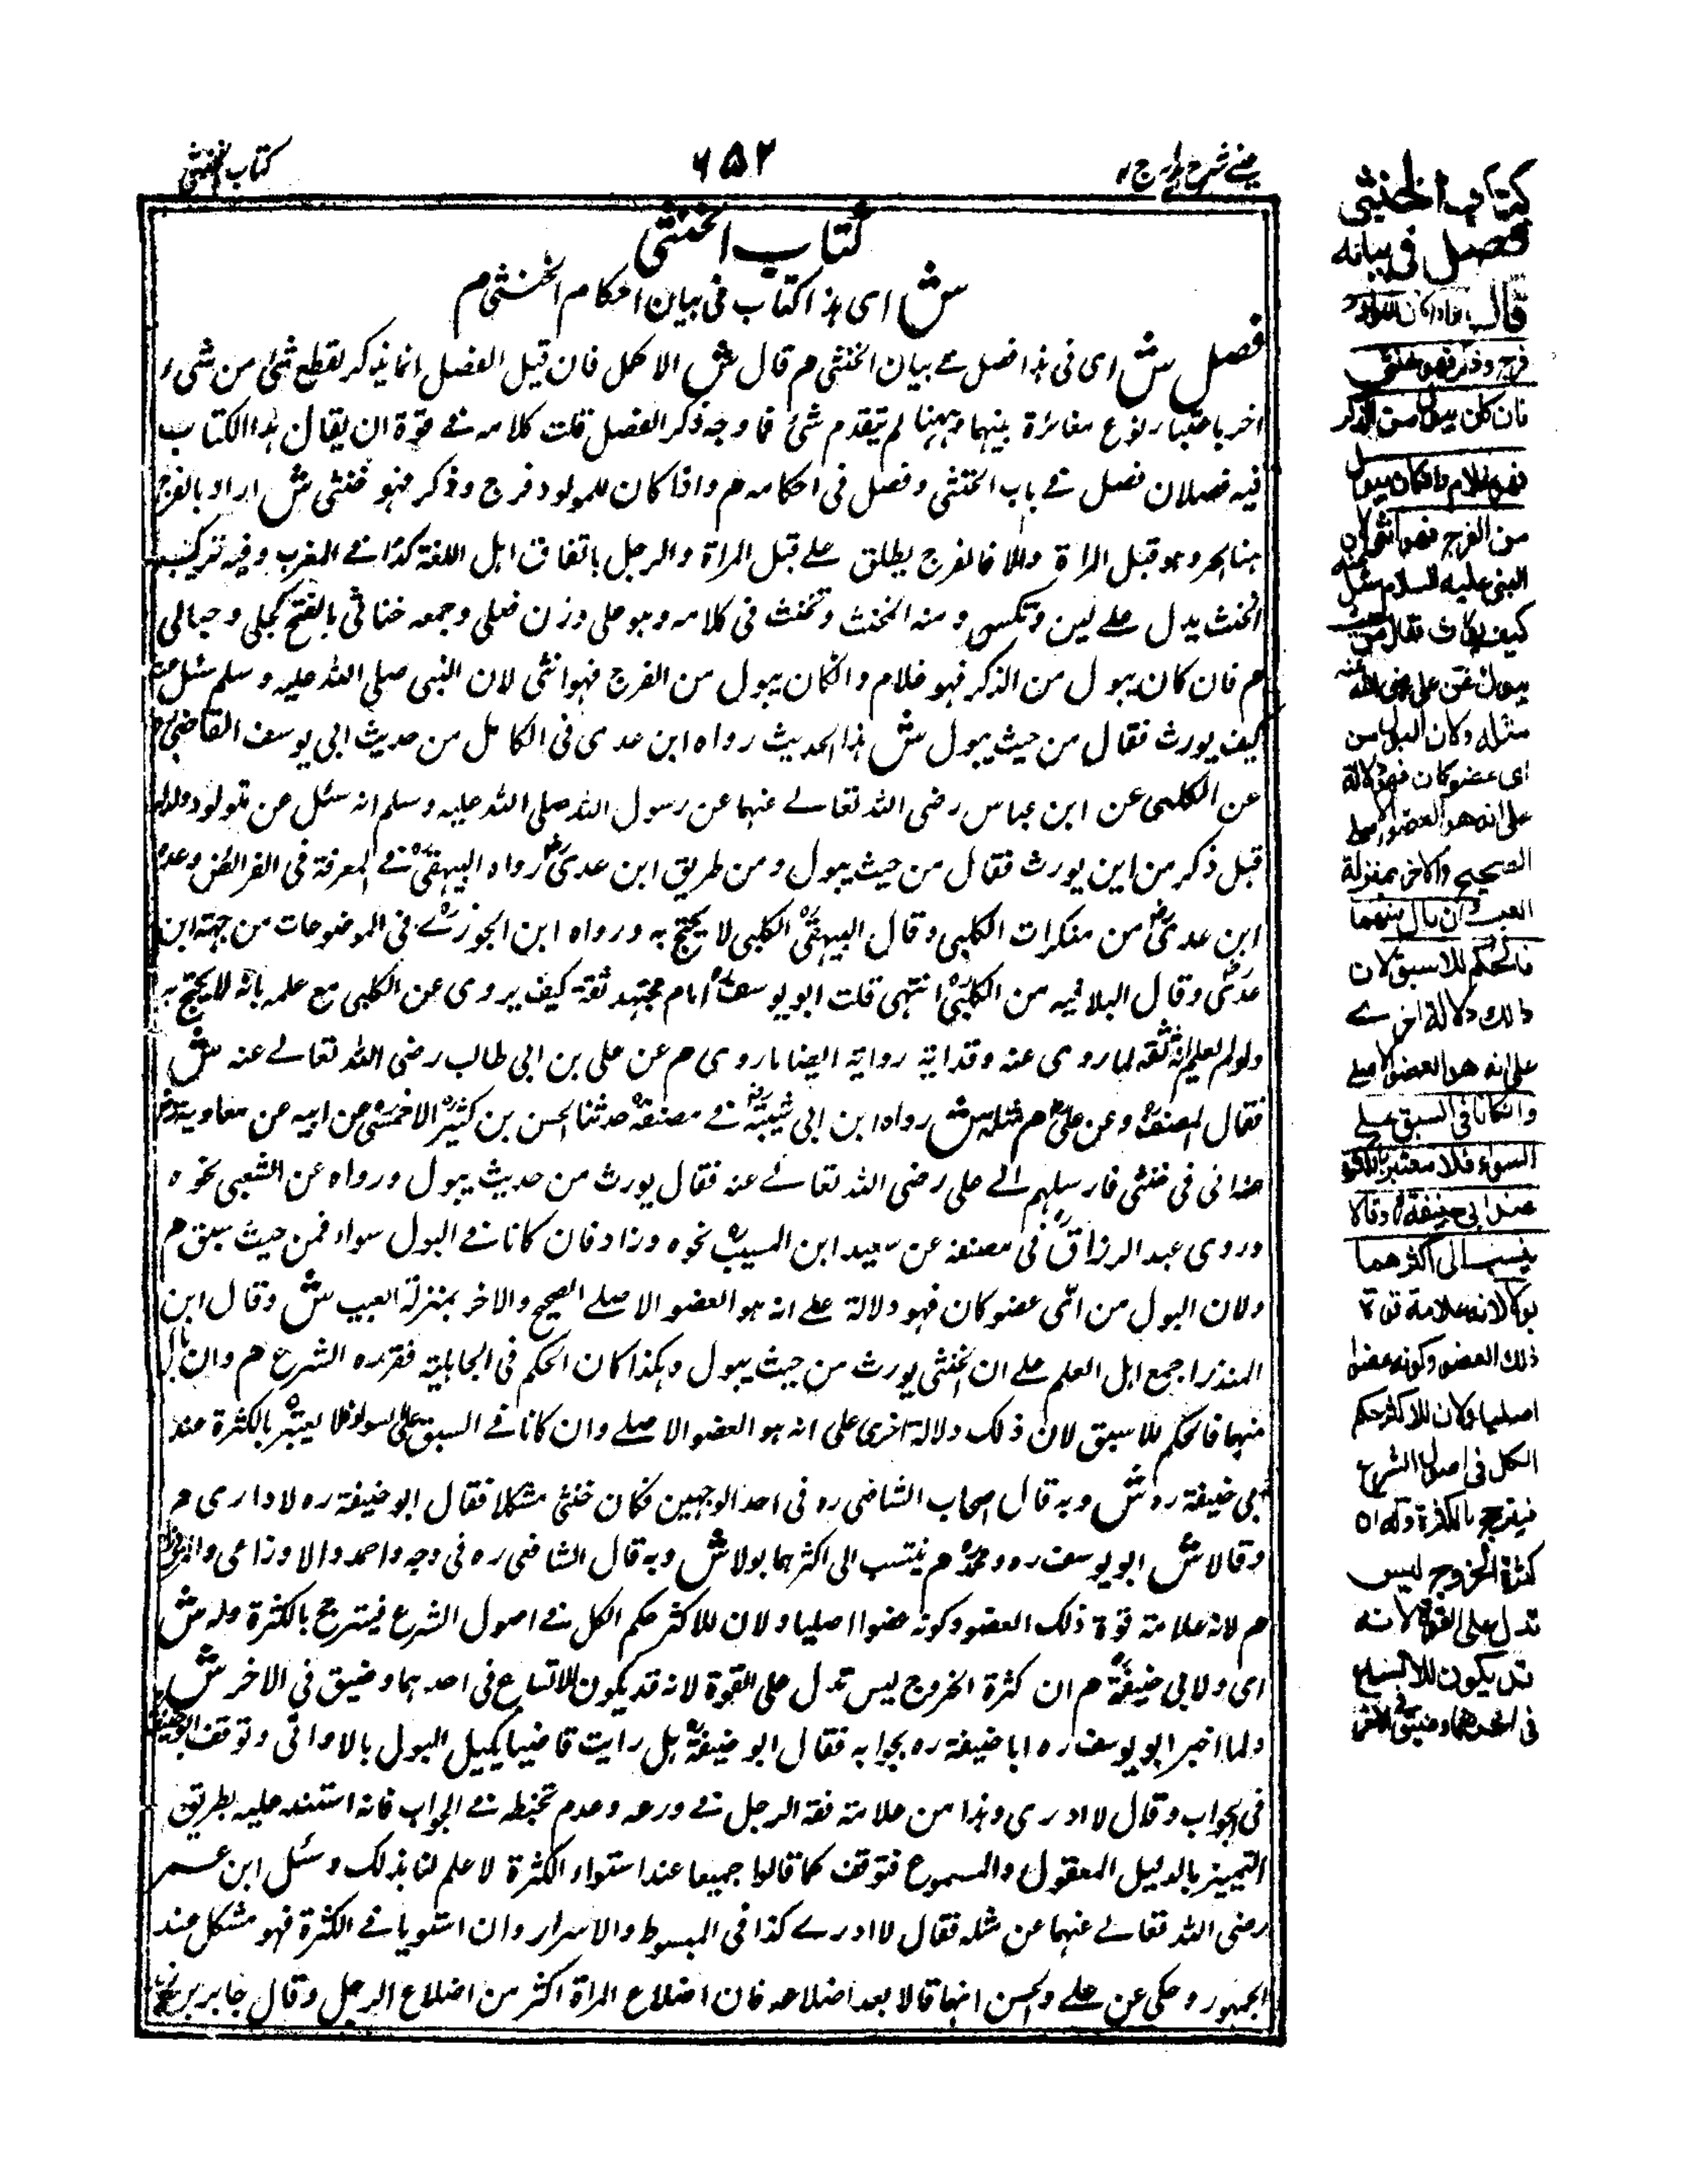 كتاب الخنثى
۶۵۲
عيني شرح هدايه ج ۴
كتاب الخنثى
ش اى هذا كتاب فى بيان احكام الخنثى م
فصل ش اى فى هذا فصل فے بيان الخنثى م قال ش الاكمل فان قيل الفصل انما يذكر لقطع شئ من شىء
اخر باعتبار نوع مغائرة بينهما وههنا لم يتقدم شئ فما وجه ذكر الفصل قلت كلامه فے قوة ان يقال هذا الكتاب
فيه فصلان فصل فے باب الخنثى وفصل فى احكامه م واذا كان للمولود فرج وذكر فهو خنثى ش اراد بالفرج
هنا الحر وهو قبل المراة والا فالفرج يطلق علے قبل المراة والرجل باتفاق اهل اللغة كذا فے المغرب وفيه تركيب
الخنث يدل علے لين وتكسر ومنه المخنث وتخنث فى كلامه وهو على وزن فعلى وجمعه خناثى بالفتح كحبلى وحبالى
م فان كان يبول من الذكر فهو غلام وان كان يبول من الفرج فهو انثى لان النبى صلى الله عليه وسلم سئل عنه
كيف يورث فقال من حيث يبول ش هذا الحديث رواه ابن عدى فى الكامل من حديث ابى يوسف القاضى
عن الكلبى عن ابن عباس رضى الله تعالے عنهما عن رسول الله صلى الله عليه وسلم انه سئل عن مولود ولد له
قبل ذكر من اين يورث فقال من حيث يبول ومن طريق ابن عدى رواه البيهقى فے المعرفة فى الفرائض وعده
ابن عدى من منكرات الكلبى وقال البيهقى الكلبى لا يحتج به ورواه ابن الجوزے فى الموضوعات من جهة ابن
عدى وقال البلا فيه من الكلبى انتهى قلت ابو يوسف امام مجتهد ثقة كيف يروى عن الكلبى مع علمه بانه لا يحتج به
ولو لم يعلم انه ثقة لما روى عنه م عن على بن ابى طالب رضى الله تعالے عنه ش
فقال المصنف وعن على م مثله ش رواه ابن ابى شيبة فے مصنفه حدثنا الحسن بن كثير الاحمسى عن ابيه عن معاوية
فى خنثى فارسلهم الے على رضى الله تعالے عنه فقال يورث من حديث يبول ورواه عن الشعبى نحوه
وروى عبد الرزاق فى مصنفه عن سعيد ابن المسيب نحوه وزاد فان كانا فے البول سواء فمن حيث سبق م
ولان البول من اى عضو كان فهو دلالة علے انه هو العضو الاصلے الصحيح والاخر بمنزلة العيب ش وقال ابن
المنذر اجمع اهل العلم علے ان الخنثى يورث من حيث يبول وهكذا كان الحكم فى الجاهلية فقرره الشرع م وان بال
منهما فالحكم للاسبق لان ذلك دلالة اخرى على انه هو العضو الاصلے وان كانا فے السبق على السواء فلا يعتبر بالكثرة عند
ابى حنيفة ره ش وبه قال اصحاب الشافعى ره فى احد الوجهين فكان خنثى مشكلا فقال ابو حنيفة ره لا ادرى م
وقالا ش ابو يوسف ره ومحمد م ينسب الى اكثرهما بولا ش وبه قال الشافعى ره فى وجه واحمد والاوزاعى
م لانه علامة قوة ذلك العضو وكونه عضوا اصليا ولان للاكثر حكم الكل فے اصول الشرع فيترجح بالكثرة وله ش
اى ولابى حنيفة م ان كثرة الخروج ليس تدل على القوة لانه قد يكون لاتساع فى احدهما وضيق فى الاخر ش
ولما اخبر ابو يوسف ره ابا حنيفة ره بجوابه فقال ابو حنيفة هل رايت قاضيا يكيل البول بالاوانى وتوقف ابو حنيفة
فى الجواب وقال لا ادرى وهذا من علامة فقه الرجل فے ورعه وعدم تخبطه فے الجواب فانه استند عليه بطريق
التمييز بالدليل المعقول والمسموع فتوقف كما قالوا جميعا عند استواء الكثرة لا علم لنا بذلك وسئل ابن عمر
رضى الله تعالے عنهما عن مثله فقال لا ادرے كذا فى المبسوط والاسرار وان استويا فے الكثرة فهو مشكل عند
الجمهور وحكى عن علے والحسن انهما قالا بعد اضلاعه فان اضلاع المراة اكثر من اضلاع الرجل وقال جابر بن
كتاب الخنثى
فصل فى بيانه
قال واذا كان للمولود
فرج وذكر فهو خنثى
فان كان يبول من الذكر
فهو غلام وان كان يبول
من الفرج فهو انثى لان
النبى عليه السلام سئل عنه
كيف يورث فقال من حيث
يبول وعن على رضى الله عنه
مثله ولان البول من
اى عضو كان فهو دلالة
على انه هو العضو الاصلى
الصحيح والاخر بمنزلة
العيب وان بال منهما
فالحكم للاسبق لان
ذالك دلالة اخرے
على انه هو العضو الاصلے
وان كانا فى السبق علے
السواء فلا معتبر بالكثرة
عند ابى حنيفة ره وقالا
ينسب الى اكثرهما
بولا لانه علامة قوة
ذلك العضو وكونه عضوا
اصليا ولان للاكثر حكم
الكل فى اصول الشرع
فيترجح بالكثرة وله ان
كثرة الخروج ليس
تدل على القوة لانه
قد يكون للاتساع
فى احدهما وضيق فى الاخر